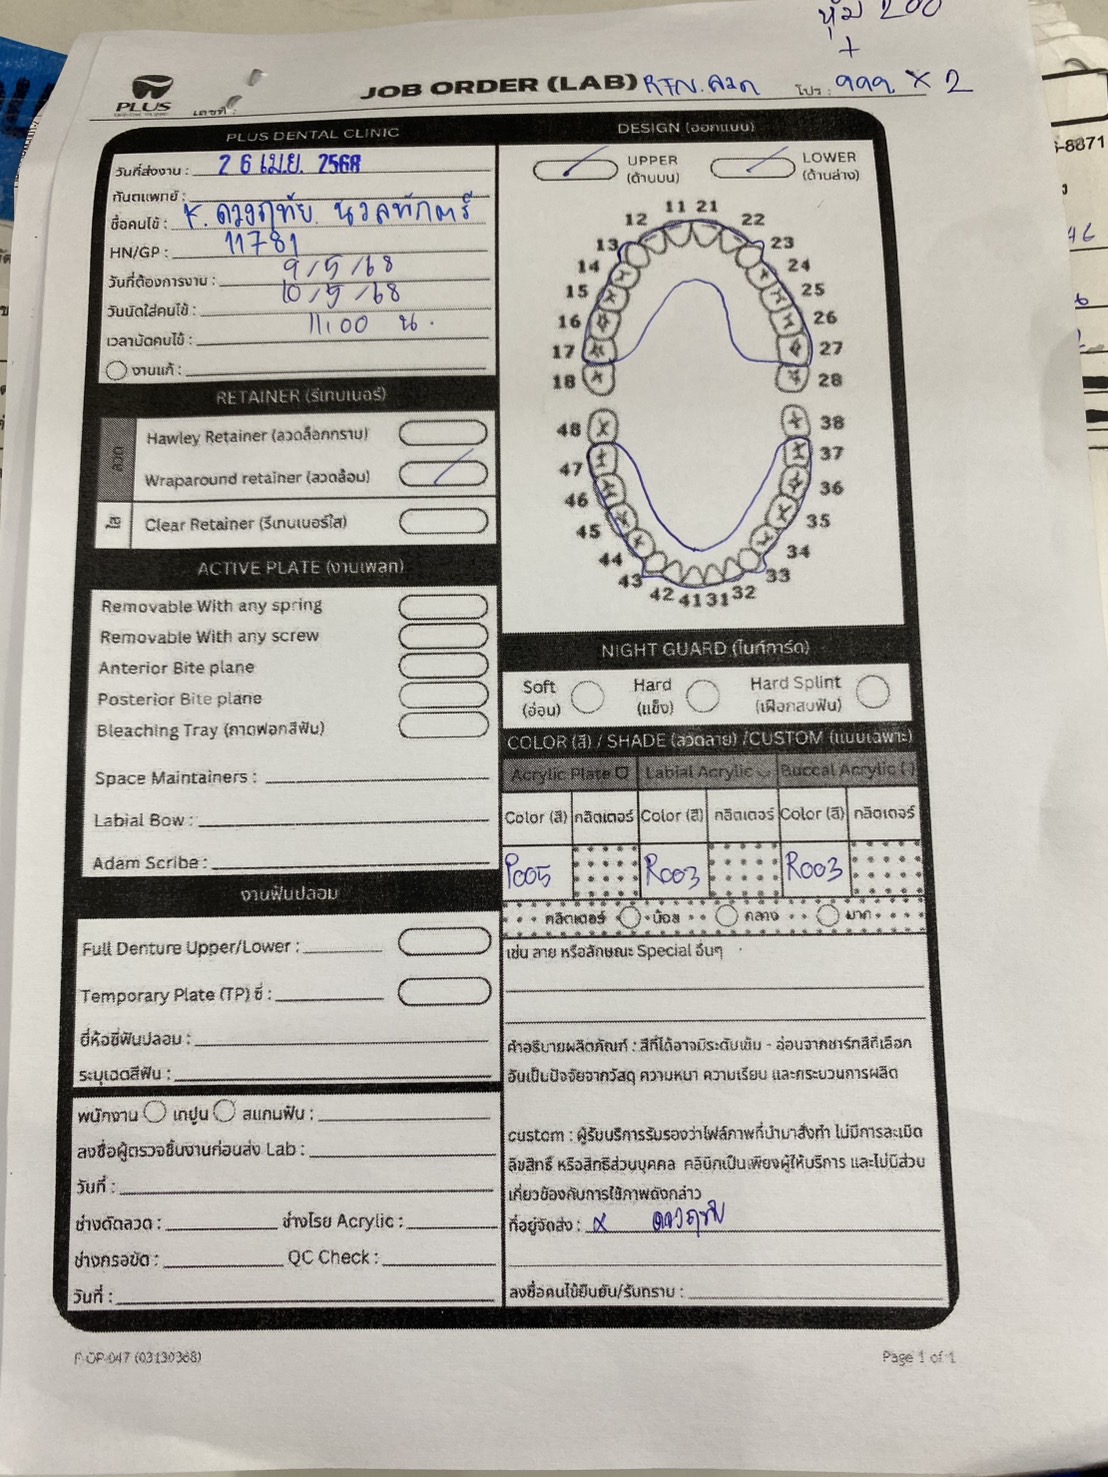 หุ้ม 200
+
PLUS
DENTAL CLINIC
เลขที่ :
JOB ORDER (LAB) RTN.ลวด
โปร : 999 x 2
PLUS DENTAL CLINIC
วันที่ส่งงาน : 26 เม.ย. 2568
ทันตแพทย์ :
ชื่อคนไข้ : K. ดวงฤทัย นวลพักตร์
HN/GP : 11781
วันที่ต้องการงาน : 9/5/68
วันนัดใส่คนไข้ : 10/5/68
เวลานัดคนไข้ : 11.00 น.
งานแก้ :
RETAINER (รีเทนเนอร์)
ลวด
Hawley Retainer (ลวดล็อกกราม)
Wraparound retainer (ลวดล้อม)
ใส
Clear Retainer (รีเทนเนอร์ใส)
ACTIVE PLATE (งานเพลท)
Removable With any spring
Removable With any screw
Anterior Bite plane
Posterior Bite plane
Bleaching Tray (ถาดฟอกสีฟัน)
Space Maintainers :
Labial Bow :
Adam Scribe :
งานฟันปลอม
Full Denture Upper/Lower :
Temporary Plate (TP) ซี่ :
ยี่ห้อซี่ฟันปลอม :
ระบุเฉดสีฟัน :
พนักงาน เทปูน สแกนฟัน :
ลงชื่อผู้ตรวจชิ้นงานก่อนส่ง Lab :
วันที่ :
ช่างดัดลวด : ช่างโรย Acrylic :
ช่างกรอขัด : QC Check :
วันที่ :
DESIGN (ออกแบบ)
UPPER (ด้านบน)
LOWER (ด้านล่าง)
11 21
12 22
13 23
14 24
15 25
16 26
17 27
18 28
48 38
47 37
46 36
45 35
44 34
43 33
42 41 31 32
NIGHT GUARD (ไนท์การ์ด)
Soft (อ่อน)
Hard (แข็ง)
Hard Splint (เฝือกสบฟัน)
COLOR (สี) / SHADE (ลวดลาย) /CUSTOM (แบบเฉพาะ)
Acrylic Plate Labial Acrylic Buccal Acrylic ( )
Color (สี) กลิตเตอร์ Color (สี) กลิตเตอร์ Color (สี) กลิตเตอร์
P005 R003 R003
กลิตเตอร์ น้อย กลาง มาก
เช่น ลาย หรือลักษณะ Special อื่นๆ
คำอธิบายผลิตภัณฑ์ : สีที่ได้อาจมีระดับเข้ม - อ่อนจากชาร์ทสีที่เลือก
อันเป็นปัจจัยจากวัสดุ ความหนา ความเรียบ และกระบวนการผลิต
custom : ผู้รับบริการรับรองว่าไฟล์ภาพที่นำมาสั่งทำ ไม่มีการละเมิด
ลิขสิทธิ์ หรือสิทธิส่วนบุคคล คลินิกเป็นเพียงผู้ให้บริการ และไม่มีส่วน
เกี่ยวข้องกับการใช้ภาพดังกล่าว
ที่อยู่จัดส่ง : x ดวงฤทัย
ลงชื่อคนไข้ยืนยัน/รับทราบ :
F-OP-047 (03130368)
Page 1 of 1